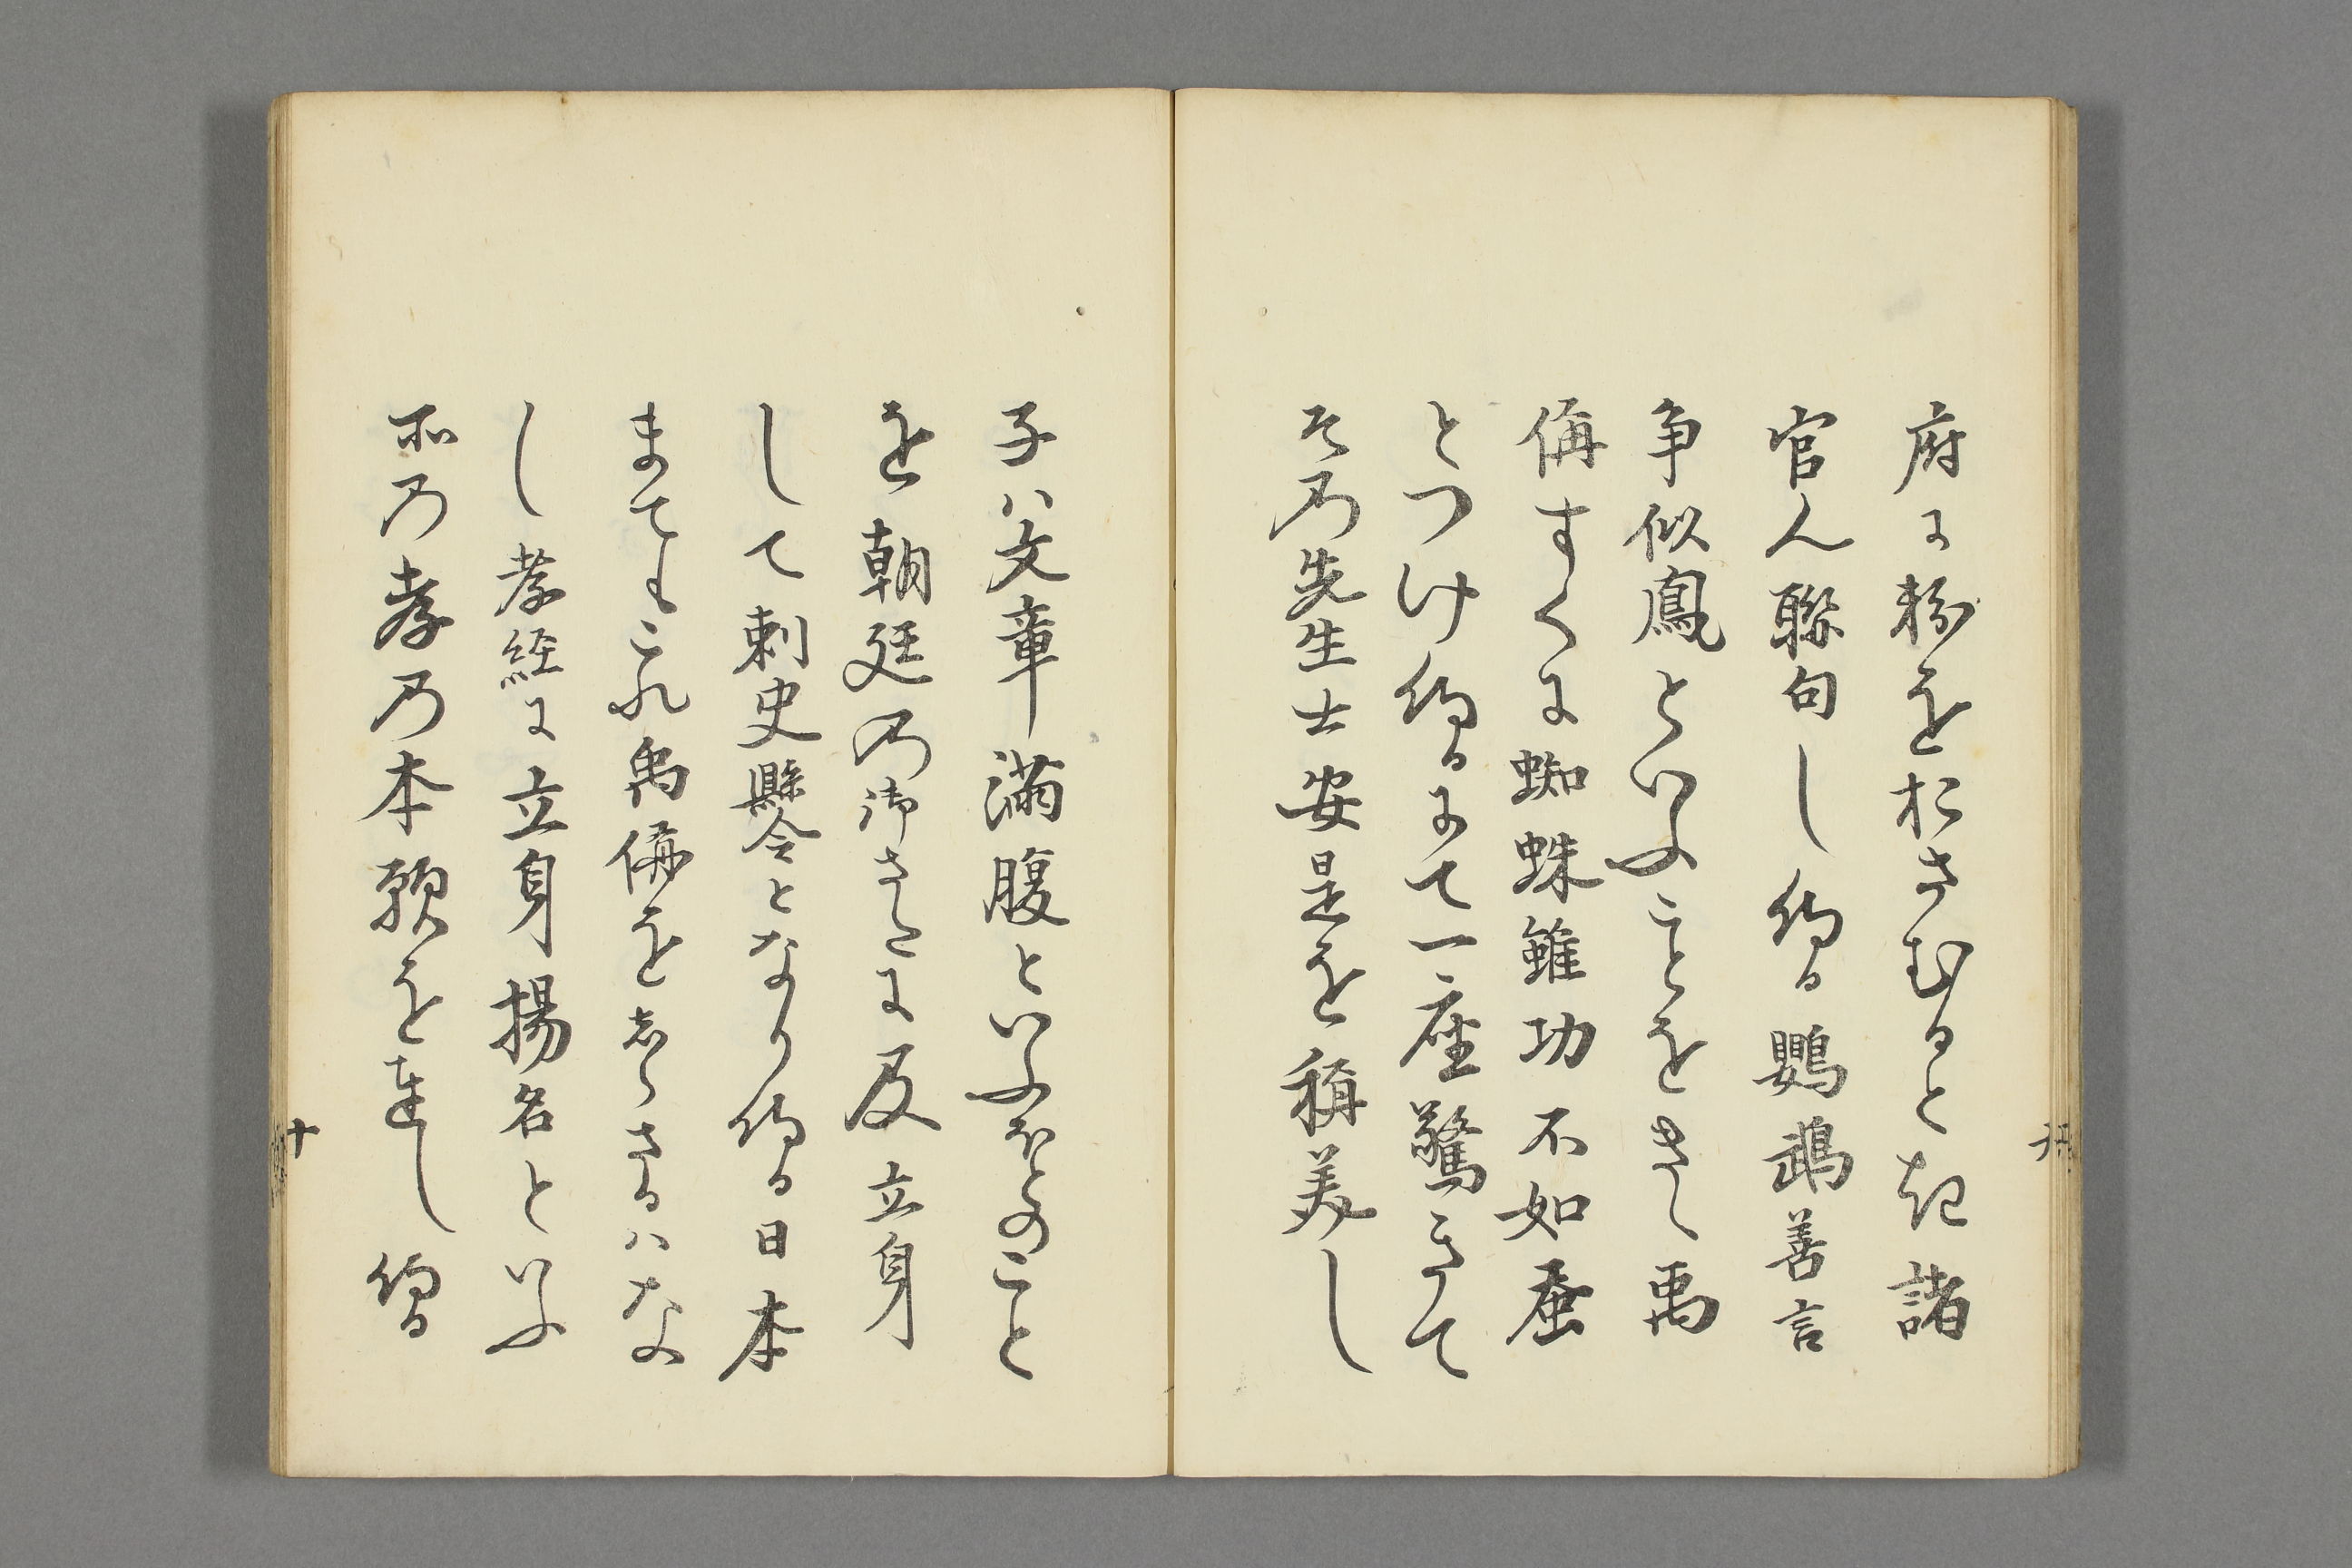 府に粉をおさむると紀諸
官人聯句し給る鸚鵡善言
争似鳳といふことをきく禹
偁すくに蜘蛛雖功不如蚕
とつけ給るよて一座驚きて
その先生士安是を称美し
子ハ文章満腹といふほとのこと
を朝廷の御さたに及立身
して刺史縣令となり給る日本
まてもこれ禹偁をしらさるハな
し孝経に立身揚名といふ
所の孝の本願を達し給る
十